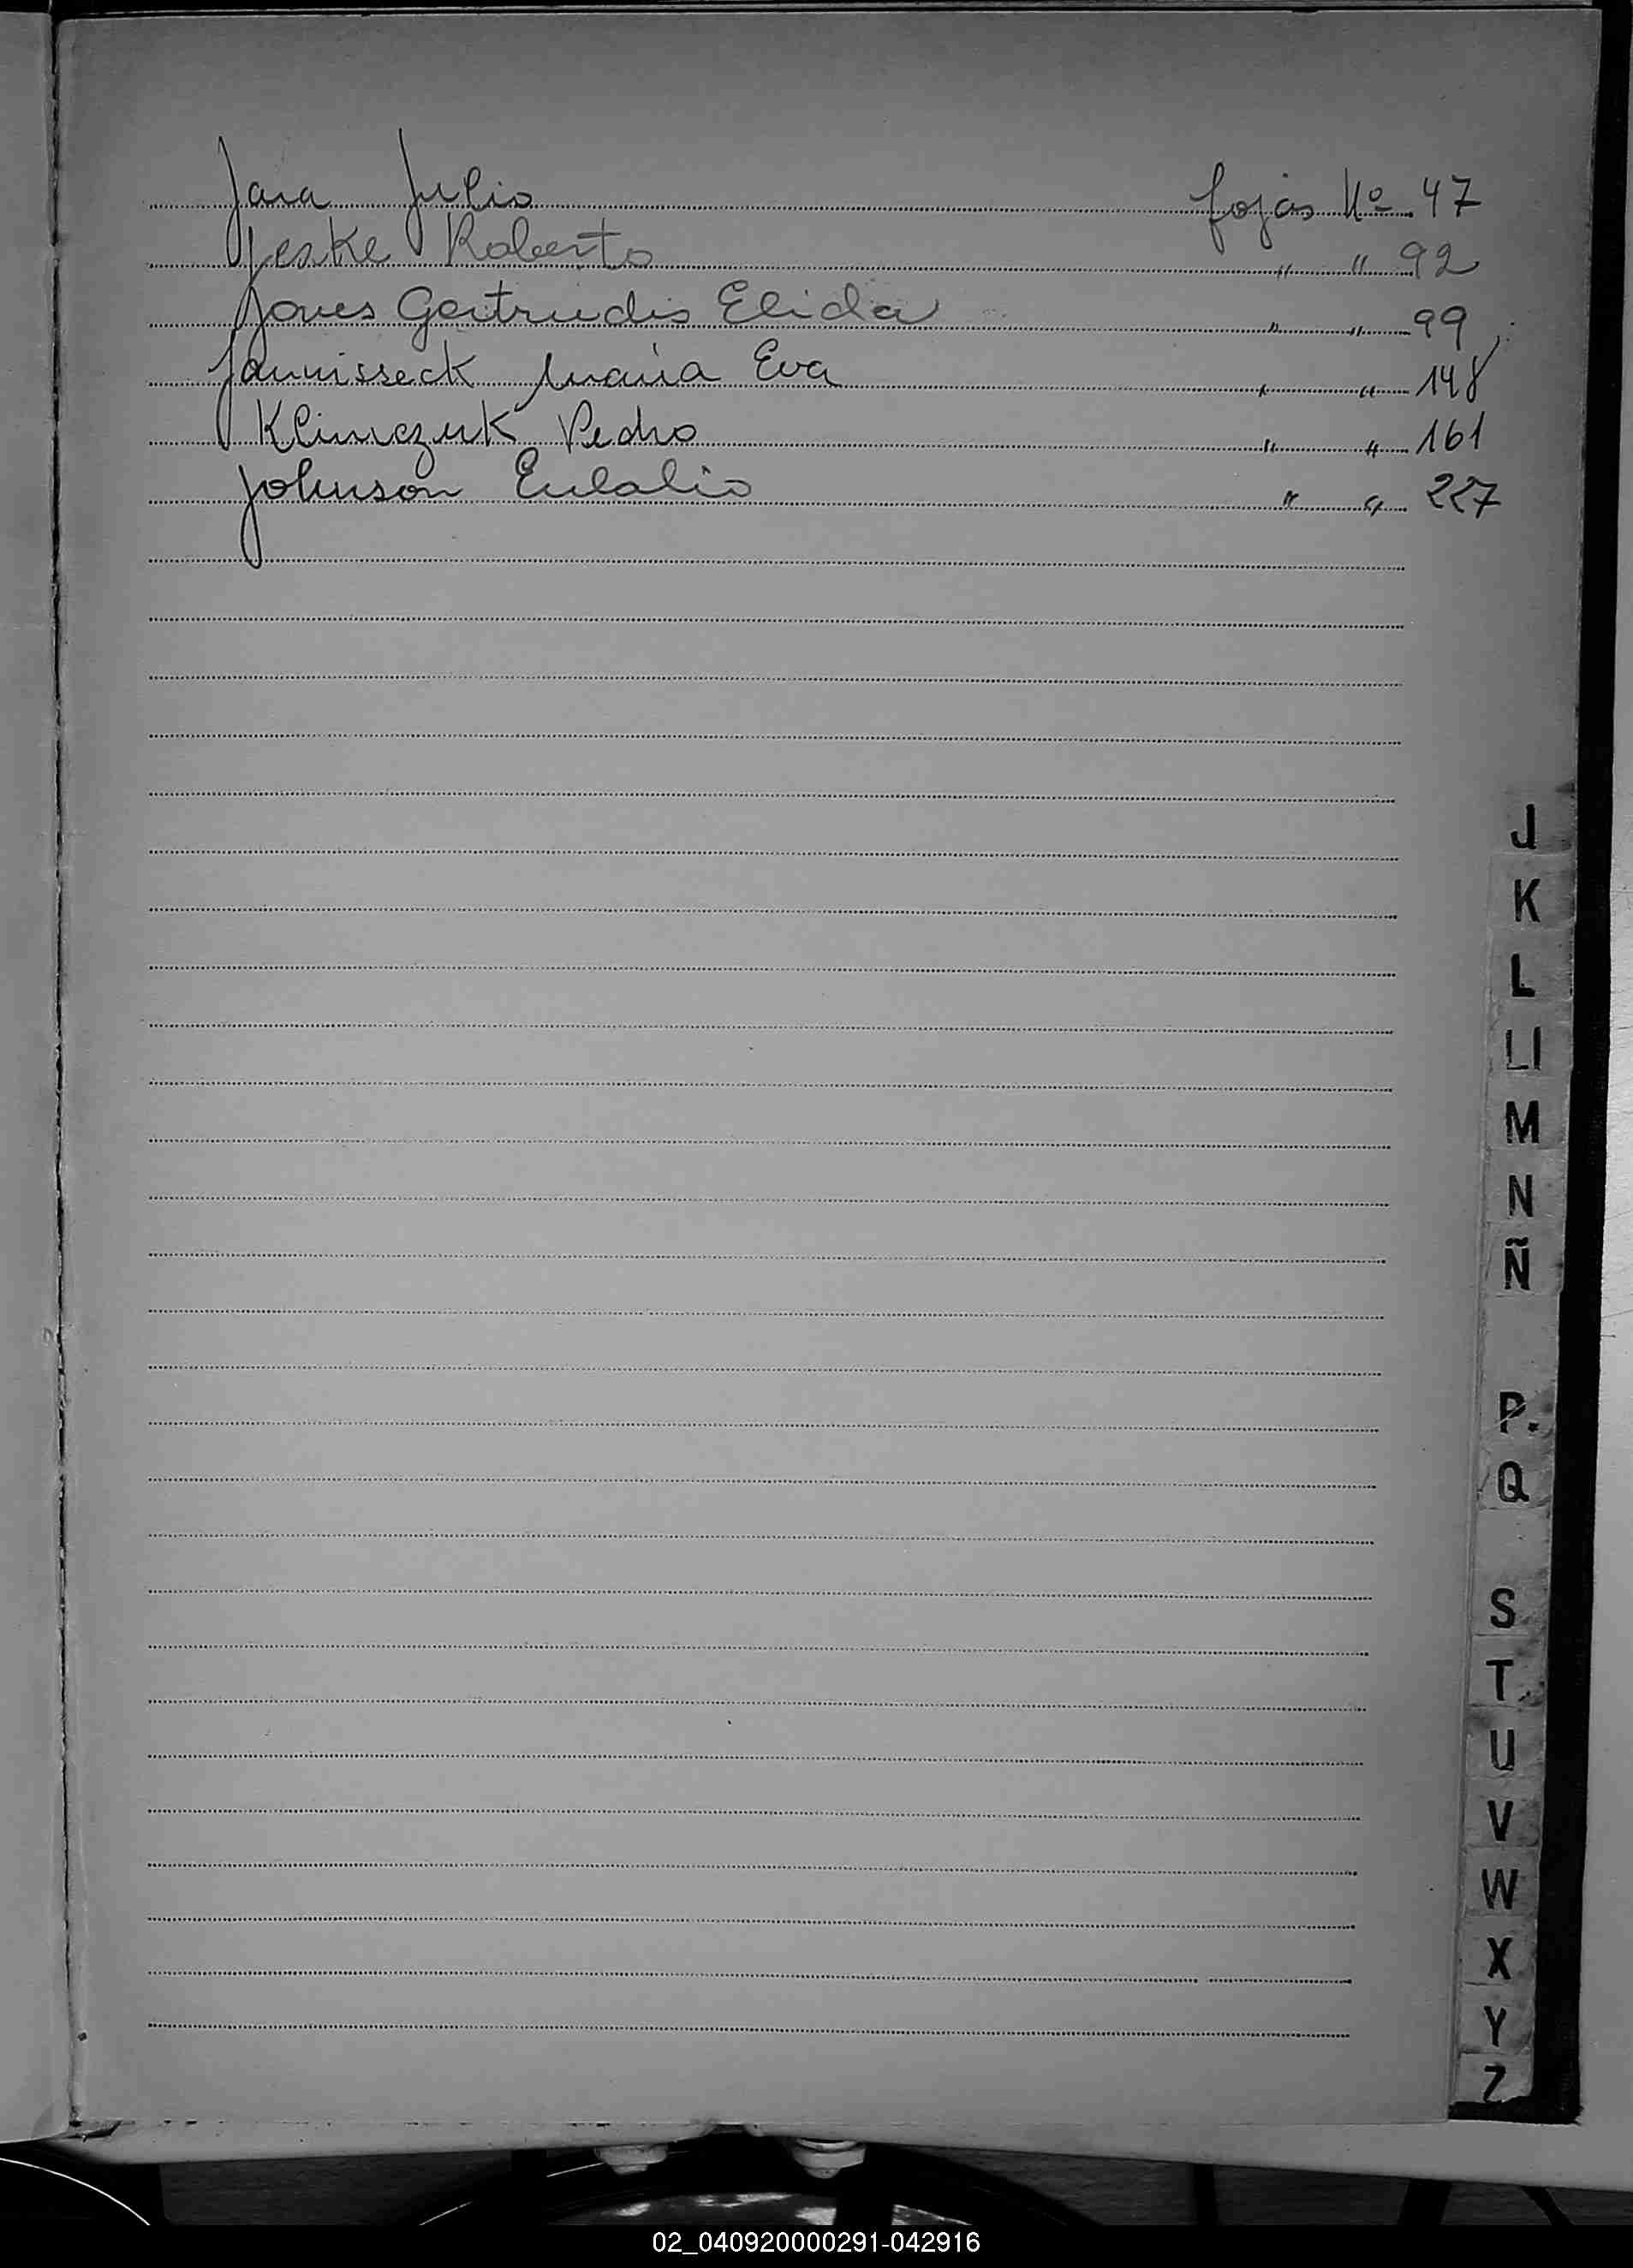 Jara Julio fojas Nº 47
Jeske Roberto " " 92
Jones Gertrudis Elida " " 99
Jannisseck Maria Eva " " 148
Klimczuk Pedro " " 161
Johnson Eulalio " " 227
J
K
L
Ll
M
N
Ñ
P.
Q
S
T
U
V
W
X
Y
Z
02_040920000291-042916